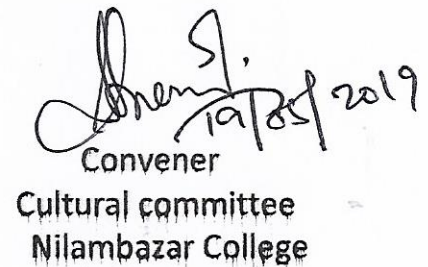 19/05/2019
Convener
Cultural committee
Nilambazar College